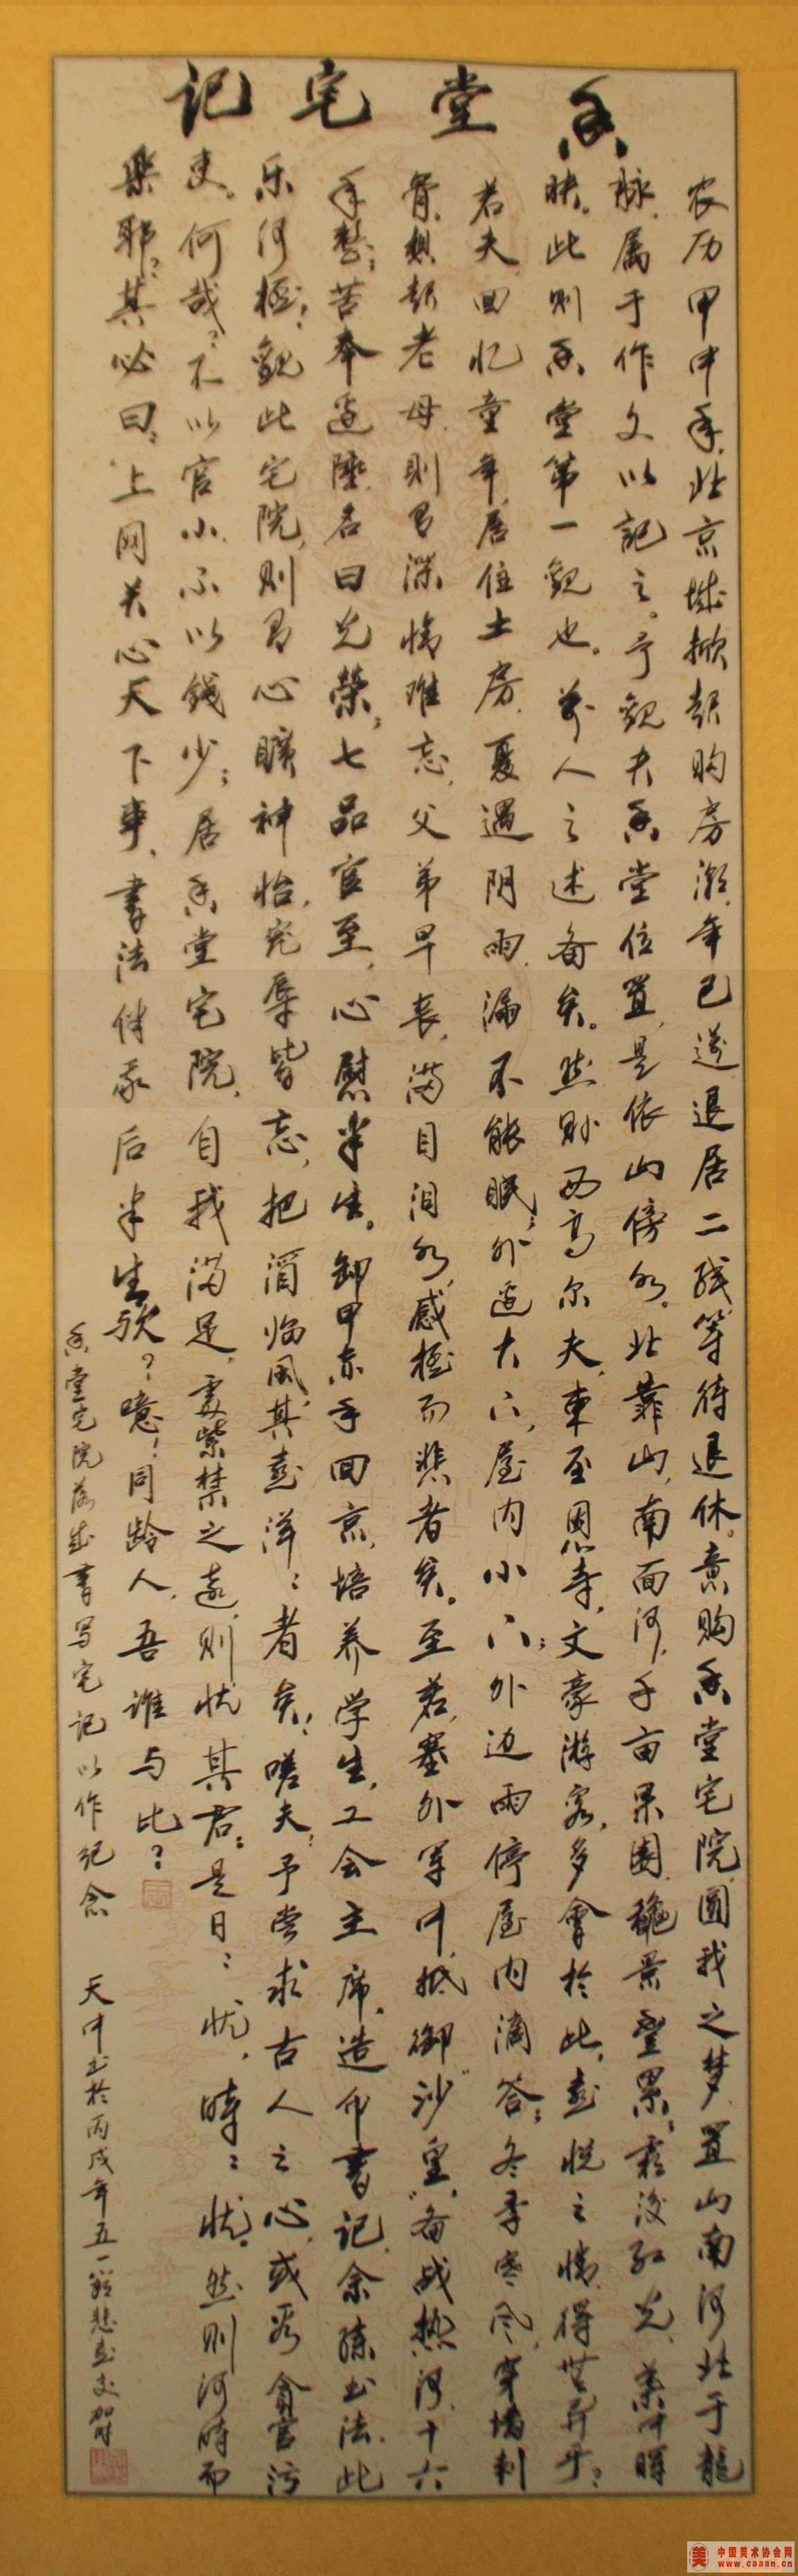 香堂宅记
农历甲申年,北京城掀起购房潮,年已送退居二线等待退休。意购香堂宅院,圆我之梦,置山南河北于龙
脉,属于作文以記之。予观夫香堂位置,是依山傍水,北靠山,南面河,千亩果園,秾景叠累,霜后红光,
映。此则香堂第一观也。前人之述备矣。然则西高尔夫,東至恩寺,文豪游客,多會於此,喜悦之情,得無异乎?
若夫回忆童年,居住土房,夏遇阴雨,漏不能眠,外边大门,屋内小门;外边雨停,屋内滴答;冬季寒风,穿墙刺
骨,想起老母,则有深情难忘,父弟早丧,满目泪水,感極而悲者矣。至若塞外军中,抵御“沙皇”,备战热河,十六
年整;苦奉边陲,名曰光榮;七品官至,心慰半生。卸甲赤手回京,培养学生,工会主席,造价書记,余练书法,此
乐何極!观此宅院,则有心曠神怡,宠辱皆忘,把酒临风,其喜洋洋者矣!嗟夫!予尝求古人之心,或為貪官污
吏。何哉?不以官小,不以錢少;居香堂宅院,自我滿足,處紫禁之遠,则忧其君;是日:忧,時:忧。然则何時而
樂耶?其必曰:上网关心天下事,書法伴家后半生歟?噫!同龄人,吾谁与比?
香堂宅院落成書写宅记以作纪念
天中书於丙戌年五一